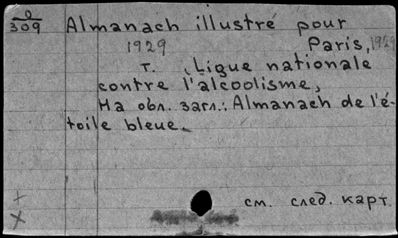 O
309
Almanach illustré pour
1929 Paris, 1929
т. , Ligue nationale
contre l'alcoolisme,
На обл. загл.: Almanach de l'é-
toile bleue.
см. след. карт.